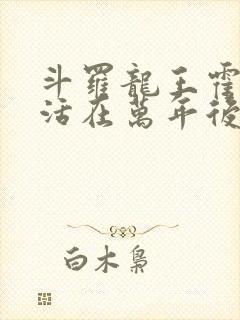 斗羅龍王霍
活在萬年後
白木梟